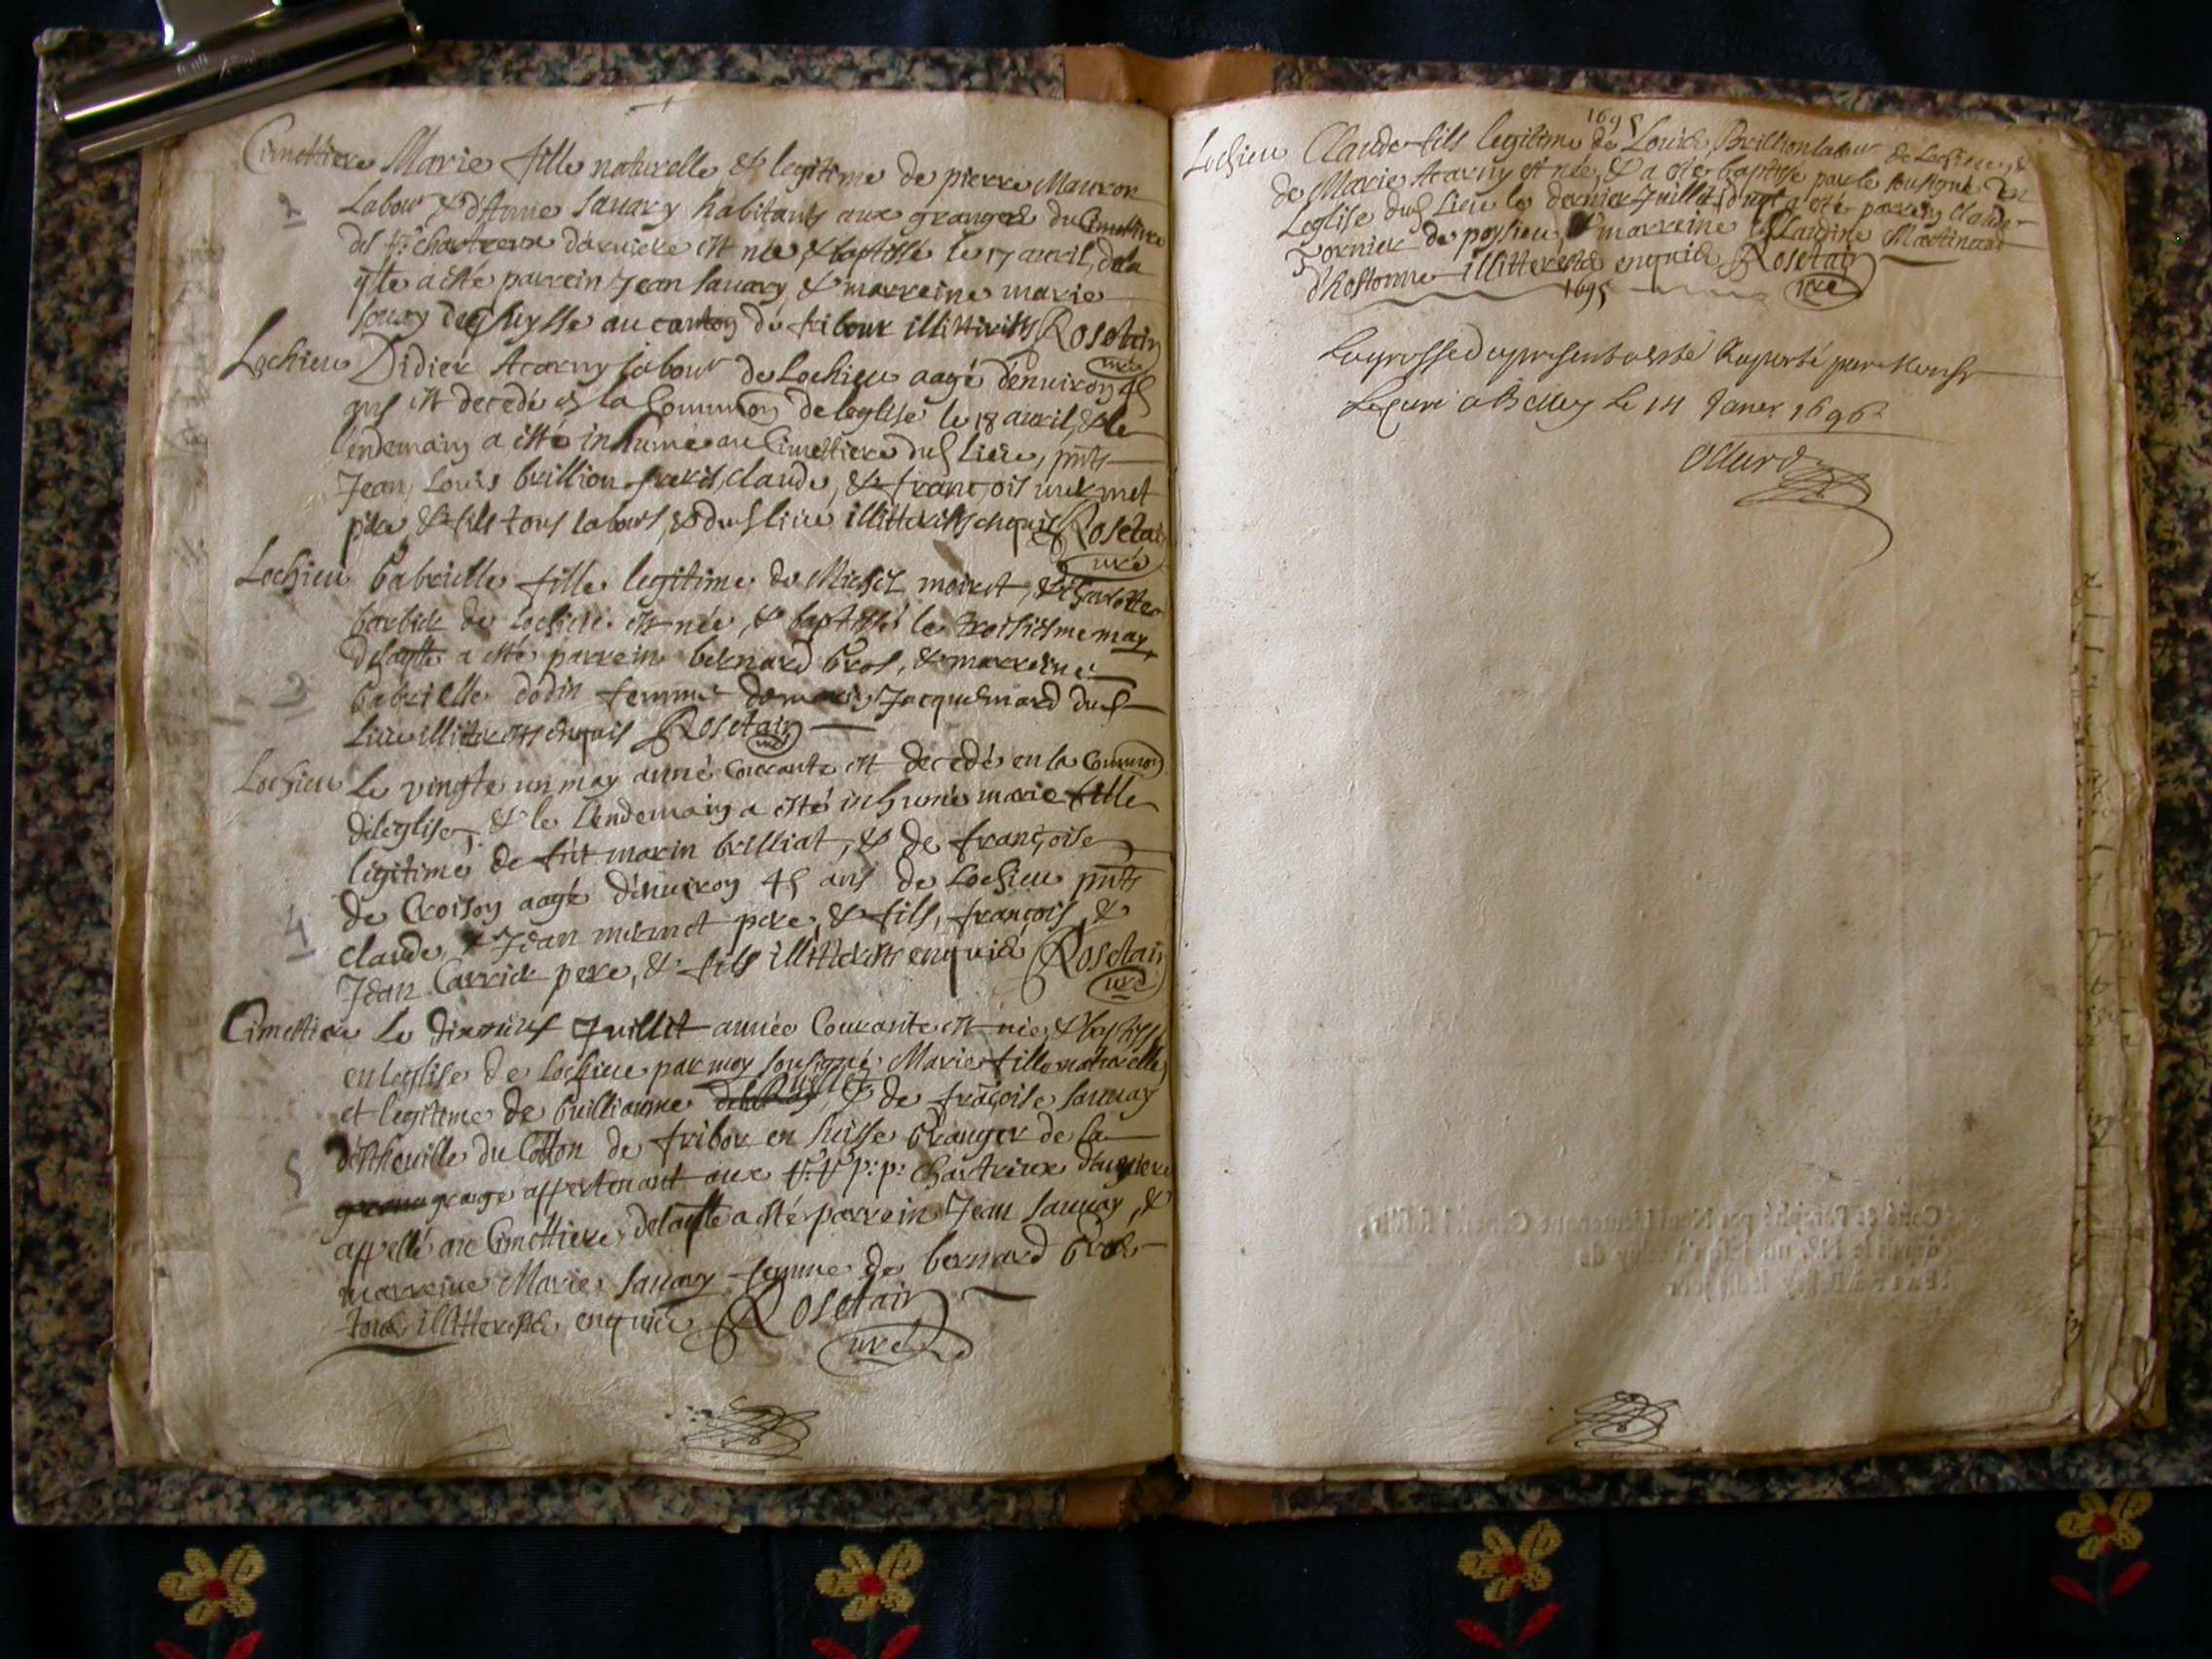 Cimettiere Marie fille naturelle & legitime de pierre Mauron
1 Labour & d'Anne Sauary habitants aux granges du Cimettiere
des chartreux d'aruiere est née & baptisée le 17 auril, de la
qlle a esté parrein Jean Sauary & marreine marie
de Suysse au canton de fribour illitterés Rosetain
curé
Lochieu Didier Acarry labour de Lochieu aagé d'enuiron 45
ans est decedé en la Common de leglise le 18 auril, & le
lendemain a esté inhumé au Cimettiere dud lieu, pnts
Jean Louis brillion freres, claude, & françois
pere & fils tous labours, & dud lieu illitterés enquis Rosetain
curé
Lochieu Gabrielle fille legitime de Michel moiret, & Charlotte
barbier de Lochieu est née, & baptisée le troisiesme may
de laqlle a esté parrein bernard Gros, & marreine
3 Gabrielle dodin femme de Jacquemard dud
Lieu illitterés enquis Rosetain
curé
Lochieu Le vingte un may année Courante est decedé en la Common
de leglise, & le Lendemain a esté inhumé marie fille
legitime de fut marin brilliat, & de françoise
de Croison aagé d'enuiron 45 ans de Lochieu pnts
4 claude, & Jean pere, & fils, françois, &
Jean Carrier pere, & fils illitterés enquis Rosetain
curé
Cimettiere Le dixneuf Juillet année Courante est née, & baptisé
en leglise de Lochieu par moy sousigné Marie fille naturelle
et legitime de Guilliaume & de françoise Sauuay
du Cotton de fribour en Suisse Granger de la
5 grange appertenant aux p: p: Chartreux d'aruiere
appellé au Cimettiere, de laqlle a esté parrein Jean Sauuay, &
marreine Marie Sauary femme de bernard Gros
tous illitterés enquis Rosetain
curé
1695
Lochieu Claude fils legitime de Louis Brillion labour de Lochieu, &
de Marie Acarry est né, & a esté baptisé par le sousigné En
Leglise dud Lieu le dernier Juillet, duql a esté parrein Claude
Fornier de poysieu, & marreine Claudine Martinand
d'hostonne illitterés enquis Rosetain
1695 curé
La grosse du present a esté Raporté par Monsr
Le Curé a Belley Le 14 Janer 1696